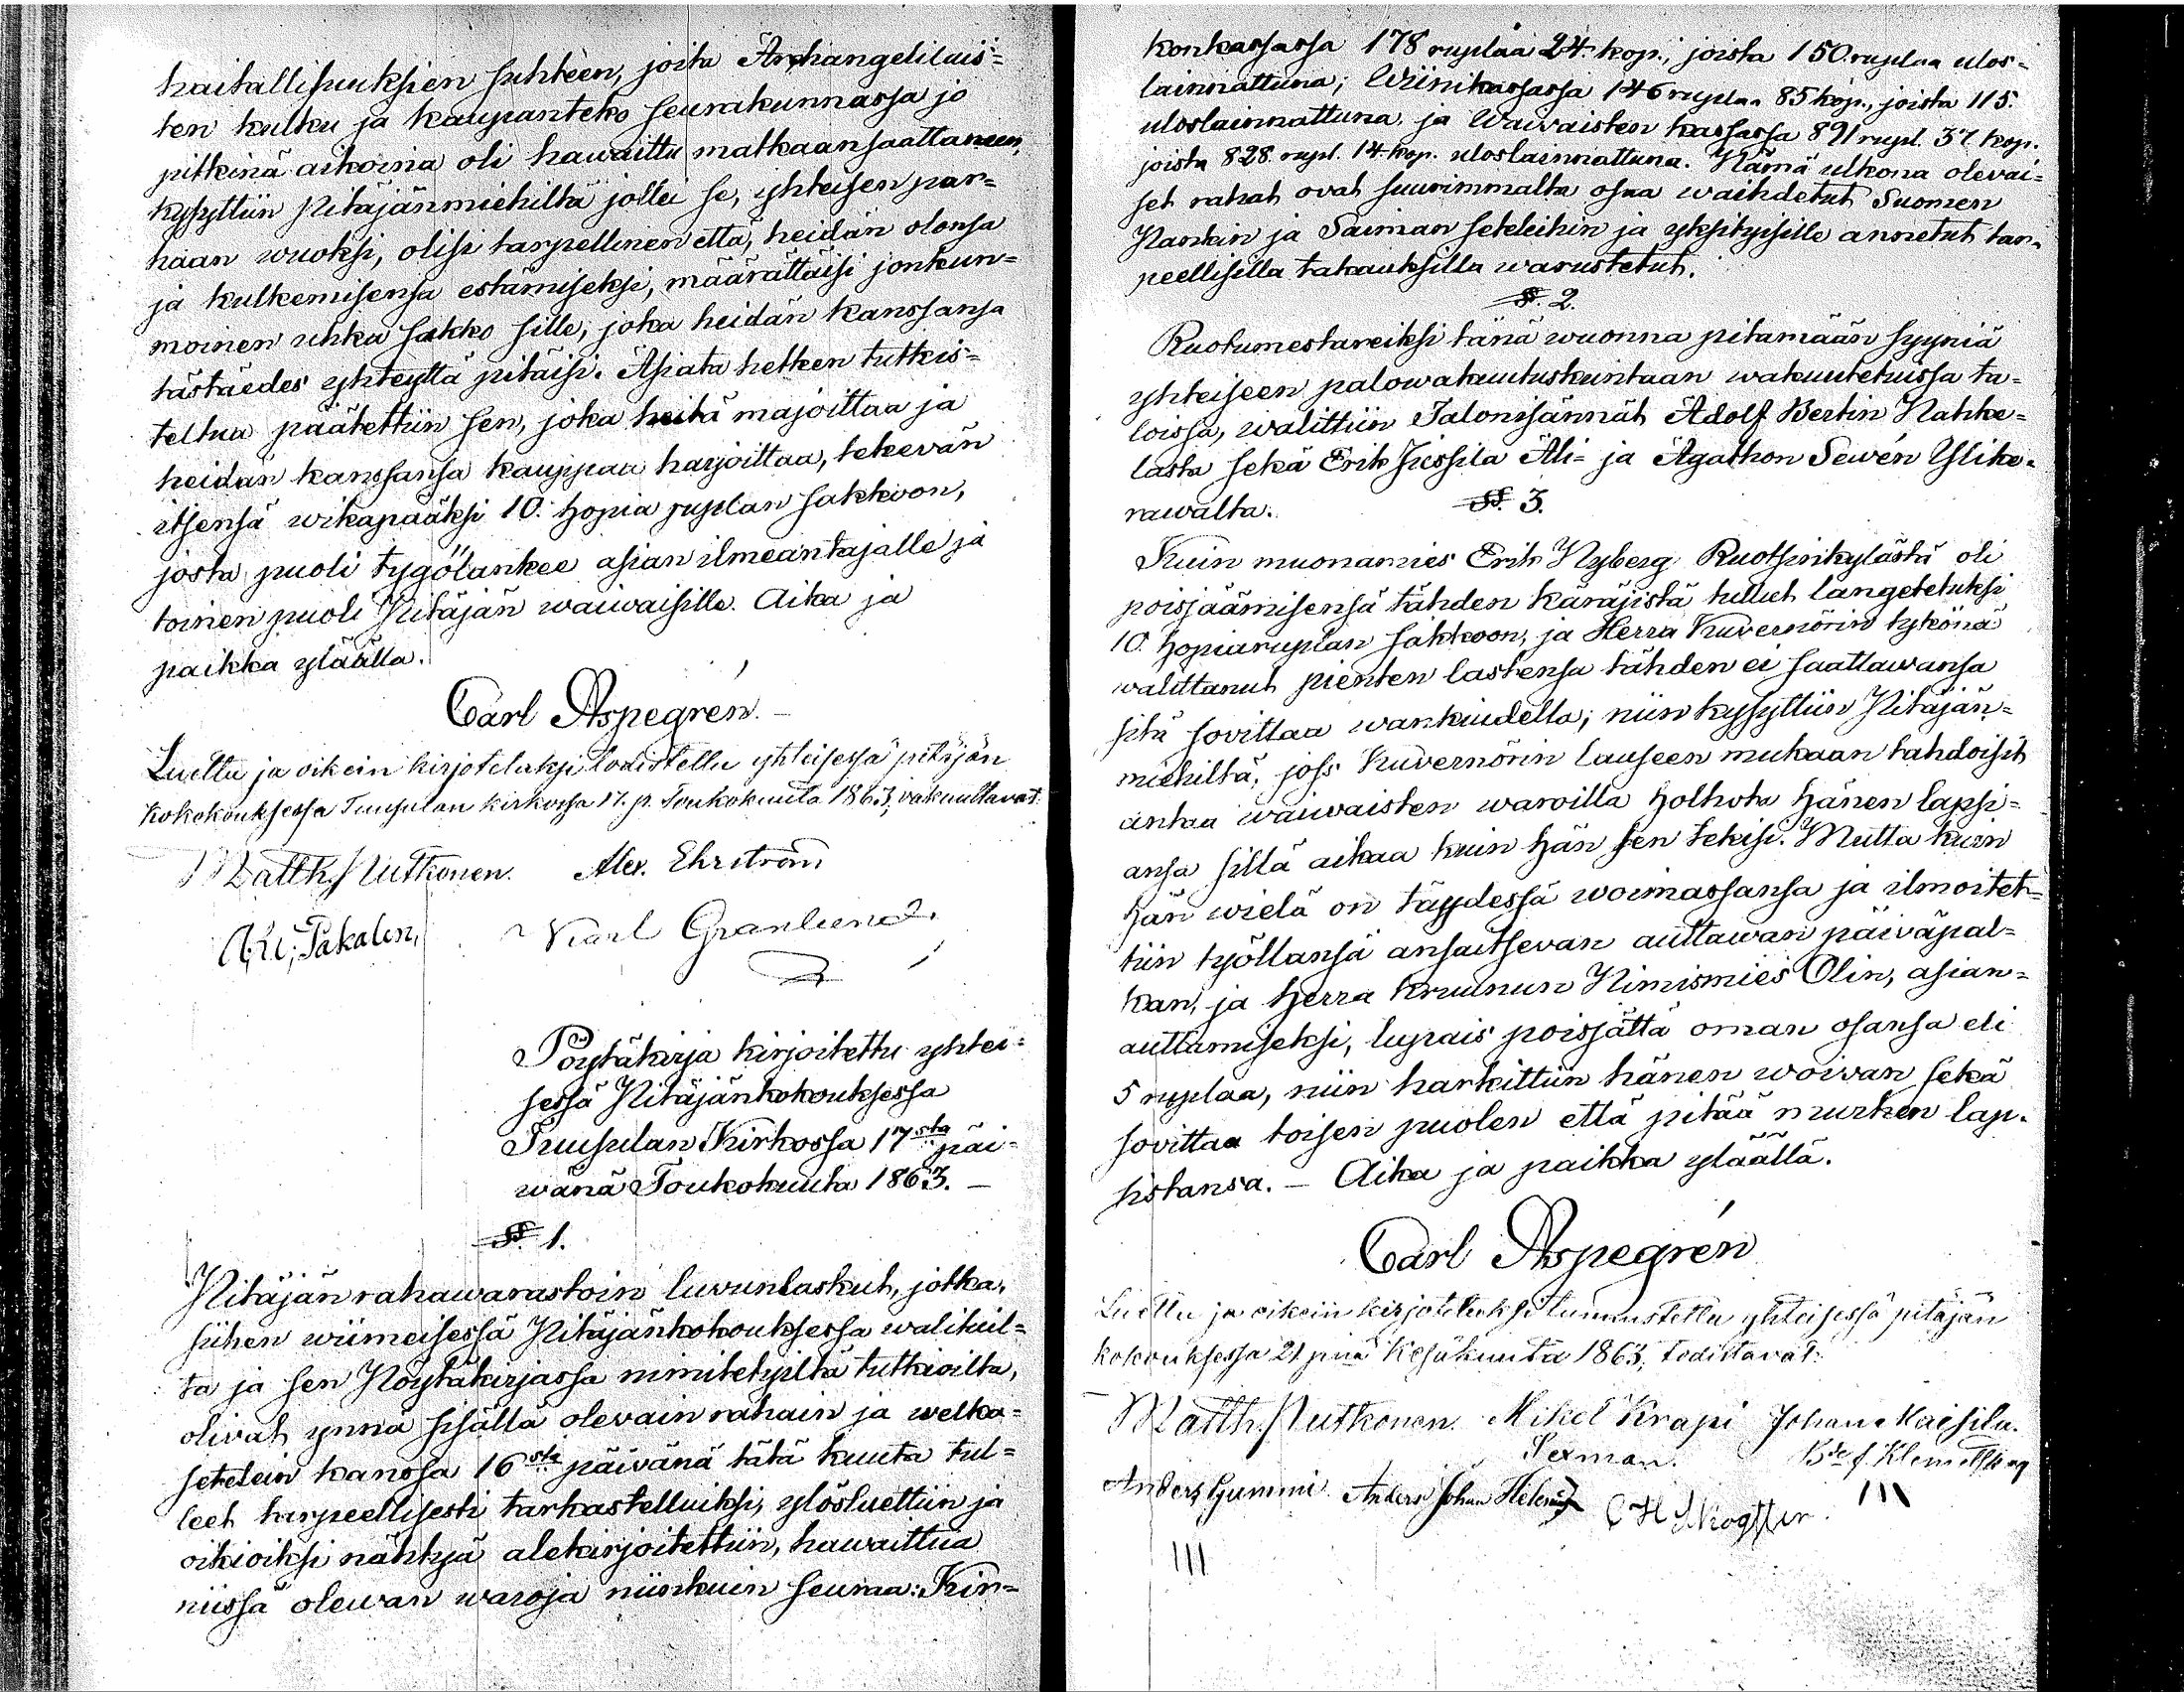 haitallisuuksien suhteen, joita Archangelilais=
ten kulku ja kaupanteko seurakunnassa jo
pitkinä aikoina oli hawaittu matkaansaattaneen,
kysyttiin Pitäjänmiehiltä jollei se, yhteisen par=
haan wuoksi, olisi tarpellinen että, heidän olonsa
ja kulkemisensa estämiseksi, määrättäisi jonkun=
moinen uhka sakko sille, joka heidän kanssansa
tästäedes yhteyttä pitäisi. Asiata hetken tutkis=
teltua päätettiin sen, joka heitä majoittaa ja
heidän kanssansa kauppaa harjoittaa, tekevän
itsensä wikapääksi 10. hopia ruplan sakkoon,
josta puoli tygölankee asian ilmeantajalle ja
toinen puoli Pitäjän waiwaisille. Aika ja
paikka yläällä.
Carl Aspegrén.
Luettu ja oikein kirjoteluksi todistettu yhteisessä pitäjän
kokokouksessa Tuusulan kirkossa 17. p. Toukokuuta 1863, vakuuttavat:
Matth. Nutkonen. Alex. Ehrström
Karl Granlund.
Pöytäkirja kirjoitettu yhtei=
sessä Pitäjänkokouksessa
Tuusulan Kirkossa 17sta päi=
wänä Toukokuuta 1863. —
§. 1.
Pitäjän rahawarastoin luvunlaskut, jotka,
siihen wiimeisessä Pitäjänkokouksessa walituil=
ta ja sen Pöytäkirjassa nimitetyiltä tutkioilta,
olivat ynnä sisällä olevain rahain ja welka=
setelein kanssa 16sta päivänä tätä kuuta tul=
leet tarpeellisesti tarkastelluiksi, ylösluettiin ja
oikioiksi nähtyä alekirjoitettiin, hawaittua
niissä olewan waroja niinkuin seuraa: Kir=
konkassassa 178 ruplaa 24. kop., joista 150. ruplaa ulos=
lainnattuna; Wiinikassassa 146 ruplaa 85 kop., joista 115.
uloslainnattuna ja Waiwaisten kassassa 891 rupl. 37. kop.
joista 828. rupl. 14. kop. uloslainnattuna. Nämä ulkona olevai=
set rahat ovat suurimmalta osaa waihdetut Suomen
Pankin ja Saiman seteleihin ja yksityisille annetut tar=
peellisilla takauksilla warustetut.
§. 2.
Ruotumestareiksi tänä wuonna pitamään syyniä
yhteiseen palowakuutuskuntaan wakuutetuissa ta=
loissa, walittiin Talonisännät Adolf Bertin Nahke=
lasta sekä Erik Jussila Ali= ja Agathon Sewén Ylike=
rawalta.
§. 3.
Kuin muonamies Erik Nyberg Ruotsinkylästä oli
poisjäämisensä tähden käräjistä tullut langetetuksi
10. hopiaruplan sakkoon, ja Herra Kuvernörin tykönä
walittanut pienten lastensa tähden ei saattawansa
sitä sovittaa wankiudella; niin kysyttiin Pitäjän=
miehiltä, joss Kuvernörin lauseen mukaan tahdoisit
antaa waiwaisten waroilla holhota hänen lapsi=
ansa sillä aikaa kuin hän sen tekisi. Mutta kuin
hän wielä on täydessä woimassansa ja ilmoitet=
tiin työllansä ansaitsevan auttawan päiväpal=
kan, ja Herra kruunun Nimismies Olin, asian=
auttamiseksi, lupais poisjättä oman osansa eli
5 ruplaa, niin harkittiin hänen woivan sekä
sovittaa toisen puolen että pitää murhen lap=
sistansa. — Aika ja paikka yläällä.
Carl Aspegrén
Luettu ja oikein kirjoteluksi tunnustettu yhteisessä pitäjän
kokouksessa 21 pnä Kesäkuuta 1863, todistavat:
Matth. Nutkonen. Mikel Krapi Johan Kaisila.
Sexman.
Anders Gummi Anders Johan
III
III